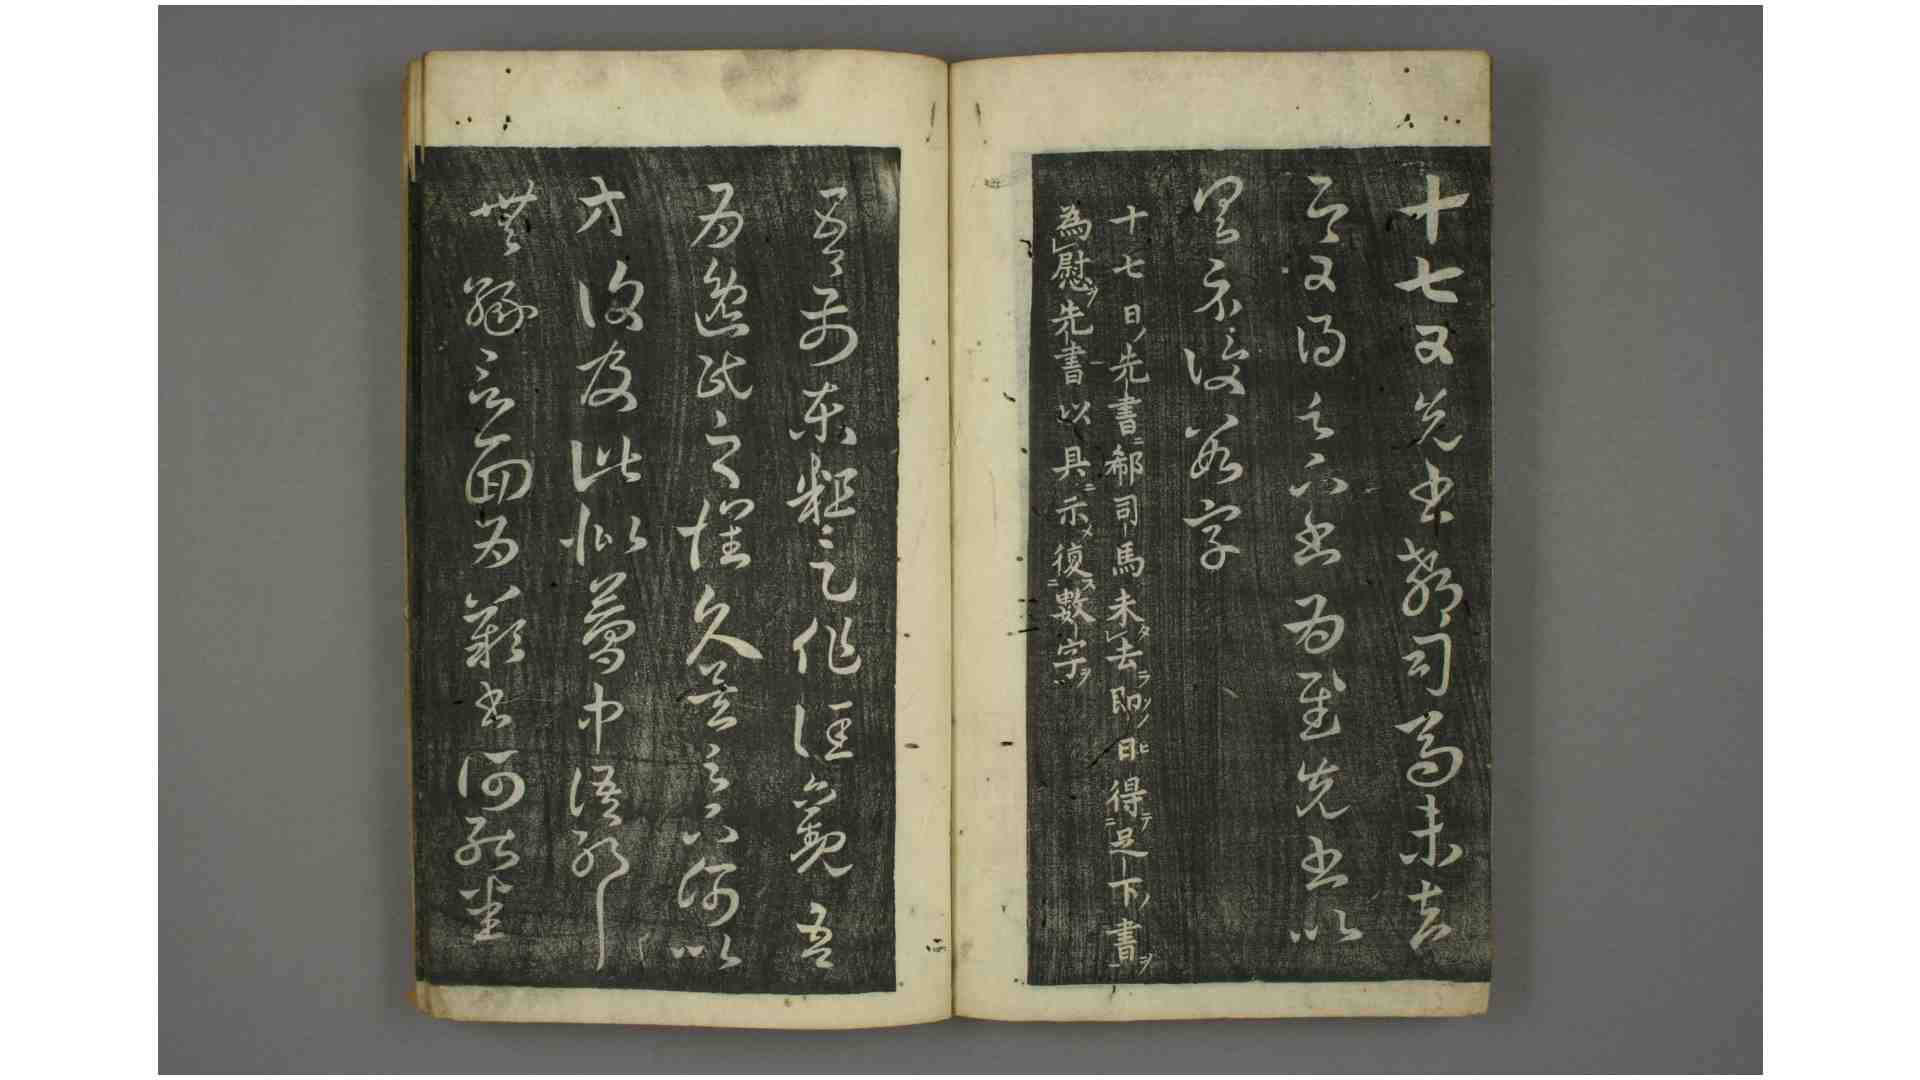 十七日先書郗司馬未去
即日得足下書為慰先書以
具示復數字
十七日先書郗司馬未去即日得足下書
為慰先書以具示復數字
吾前東粗足作佳觀吾
為逸民之懷久矣足下何以
方復及此似夢中語耶
無緣言面為歎書何能悉